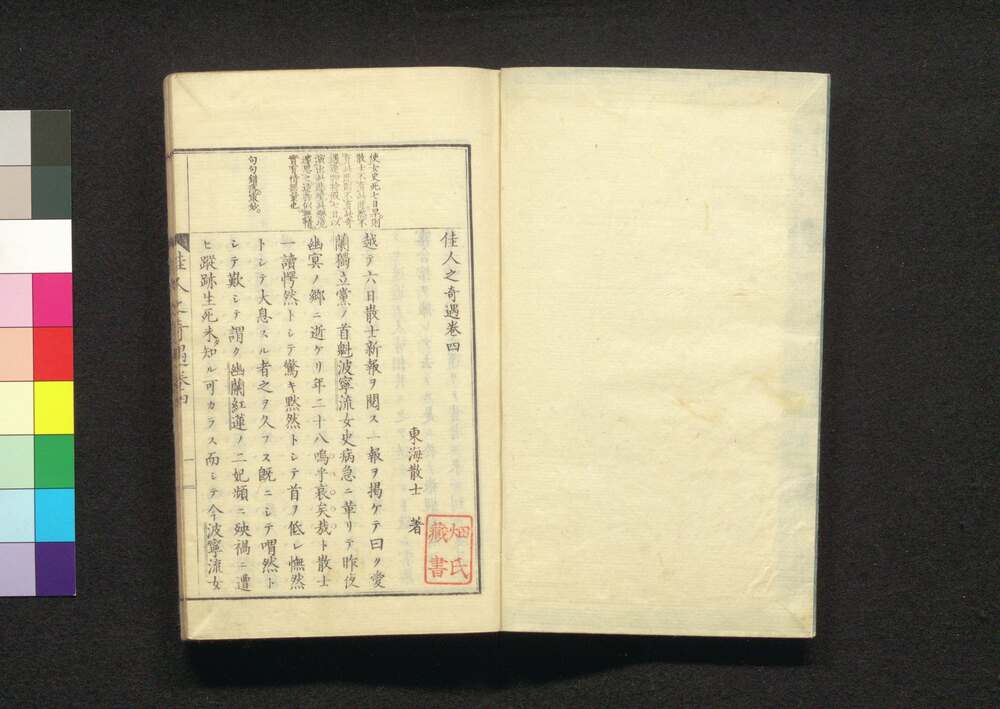 佳人之奇遇卷四
東海散士 著
越テ六日散士新報ヲ閲ス一報ヲ掲ケテ曰ク愛
蘭獨立黨ノ首魁波寧流女史病急ニ革リテ昨夜
幽冥ノ郷ニ逝ケリ年二十八嗚乎哀矣哉ト散士
一讀愕然トシテ驚キ黙然トシテ首ヲ低レ憮然
トシテ大息スル者之ヲ久フス既ニシテ喟然ト
シテ歎シテ謂ク幽蘭紅蓮ノ二妃頻ニ殃禍ニ遭
ヒ蹤跡生死未知ル可カラス而シテ今波寧流女
使女史死七日早則
句句錯落最妙
佳人之奇遇卷四
一
畑氏
藏書